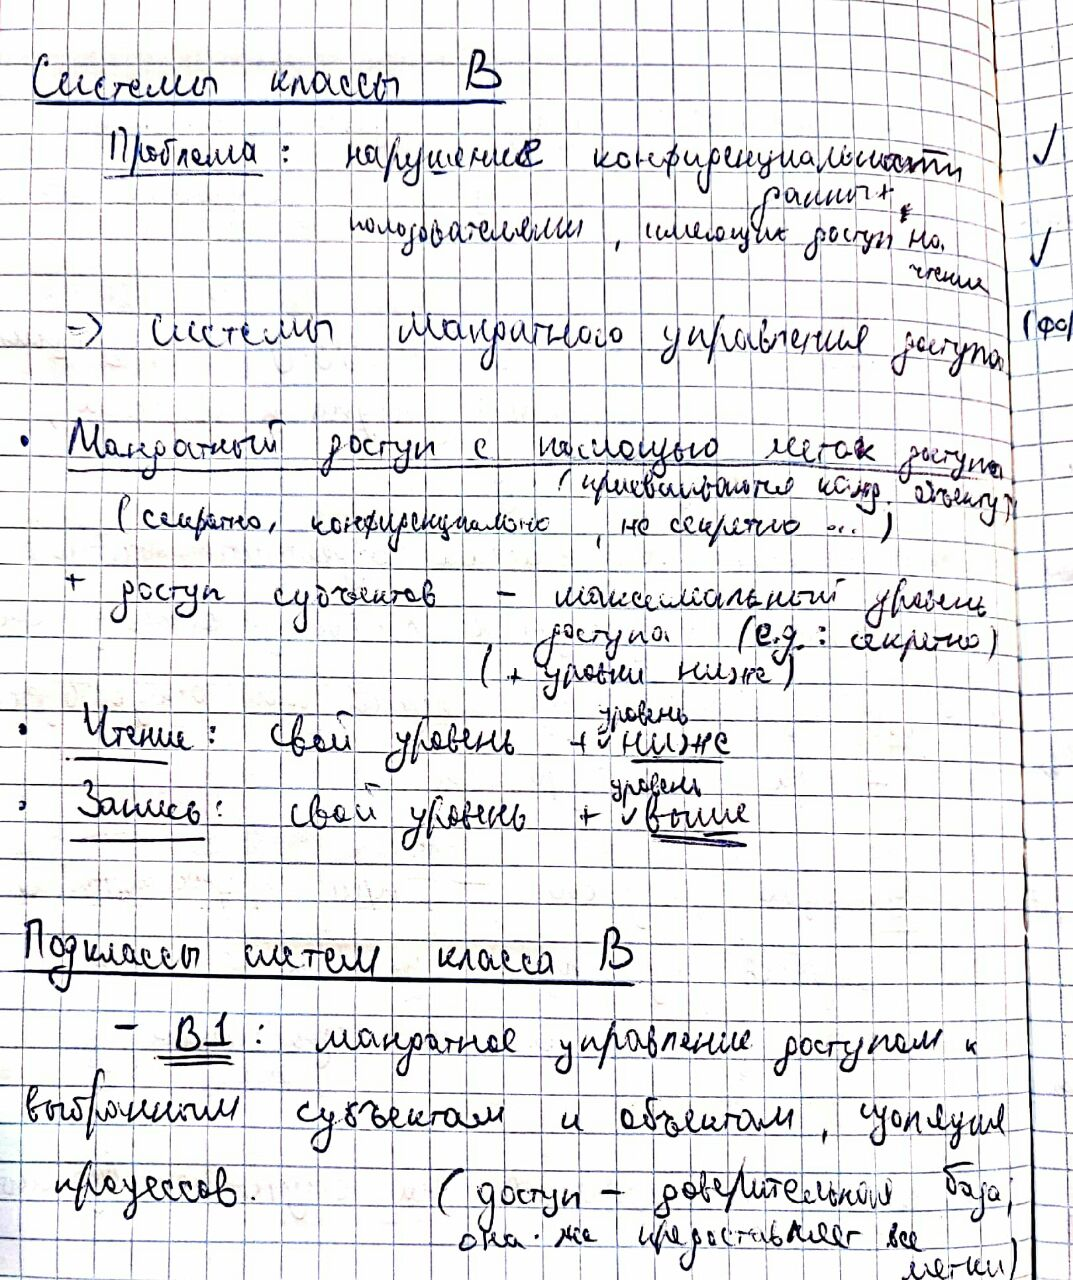 Системы классы В
Проблема: нарушение конфиденциальности
данных
пользователями, имеющих доступ на
чтение
=> системы мандатного управления доступа
• Мандатный доступ с помощью меток доступа
(присваиваются кажд. объекту)
(секретно, конфиденциально, не секретно ...)
+ доступ субъектов - максимальный уровень
доступа (e.g.: секретно)
(+ уровни ниже)
уровень
• Чтение: свой уровень + ниже
уровень
• Запись: свой уровень + выше
Подклассы систем класса В
- В1: мандатное управление доступом к
выбранным субъектам и объектам, изоляция
процессов. (доступ - доверительная база,
она же предоставляет все
метки)